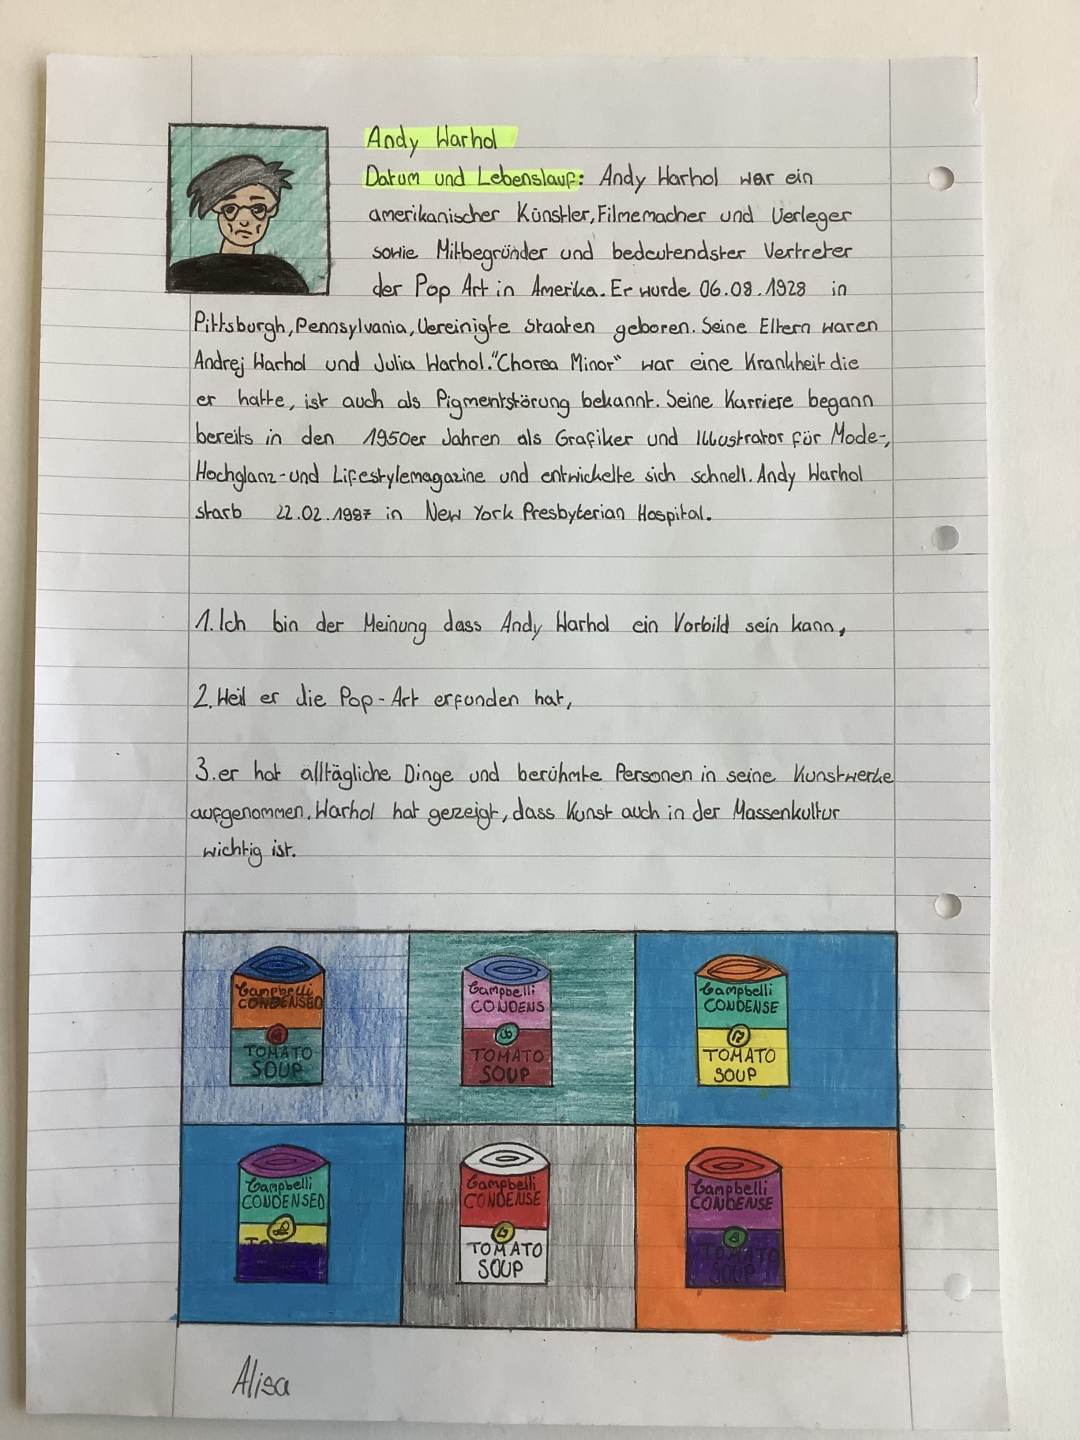 Andy Warhol
Datum und Lebenslauf: Andy Warhol war ein
amerikanischer Künstler, Filmemacher und Verleger
sowie Mitbegründer und bedeutendster Vertreter
der Pop Art in Amerika. Er wurde 06.08.1928 in
Pittsburgh, Pennsylvania, Vereinigte Staaten geboren. Seine Eltern waren
Andrej Warhol und Julia Warhol. "Chorea Minor" war eine Krankheit die
er hatte, ist auch als Pigmentstörung bekannt. Seine Karriere begann
bereits in den 1950er Jahren als Grafiker und Illustrator für Mode-,
Hochglanz- und Lifestylemagazine und entwickelte sich schnell. Andy Warhol
starb 22.02.1987 in New York Presbyterian Hospital.
1. Ich bin der Meinung dass Andy Warhol ein Vorbild sein kann,
2. Weil er die Pop-Art erfunden hat,
3. er hat alltägliche Dinge und berühmte Personen in seine Kunstwerke
aufgenommen. Warhol hat gezeigt, dass Kunst auch in der Massenkultur
wichtig ist.
Campbelli
CONDENSED
TOMATO
SOUP
Campbelli
CONDENS
TOMATO
SOUP
Campbelli
CONDENSE
TOMATO
SOUP
Campbelli
CONDENSED
Campbelli
CONDENSE
TOMATO
SOUP
Campbelli
CONDENSE
TOMATO
SOUP
Alisa